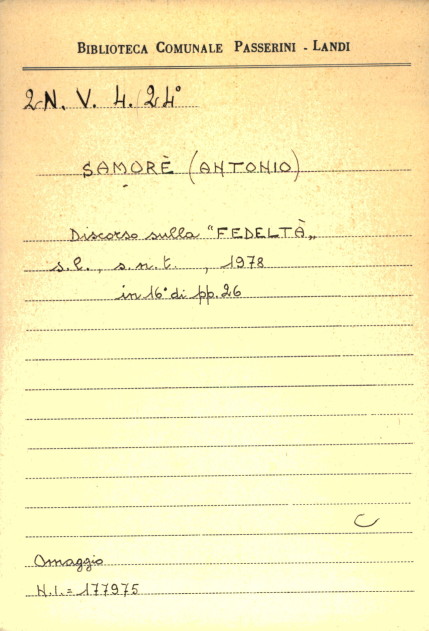 BIBLIOTECA COMUNALE PASSERINI - LANDI
2N. V. 4. 24°
SAMORÈ (ANTONIO)
Discorso sulla "FEDELTÀ„
s.l., s.n.t., 1978
in 16° di pp. 26
C
Omaggio
N.I. = 177975